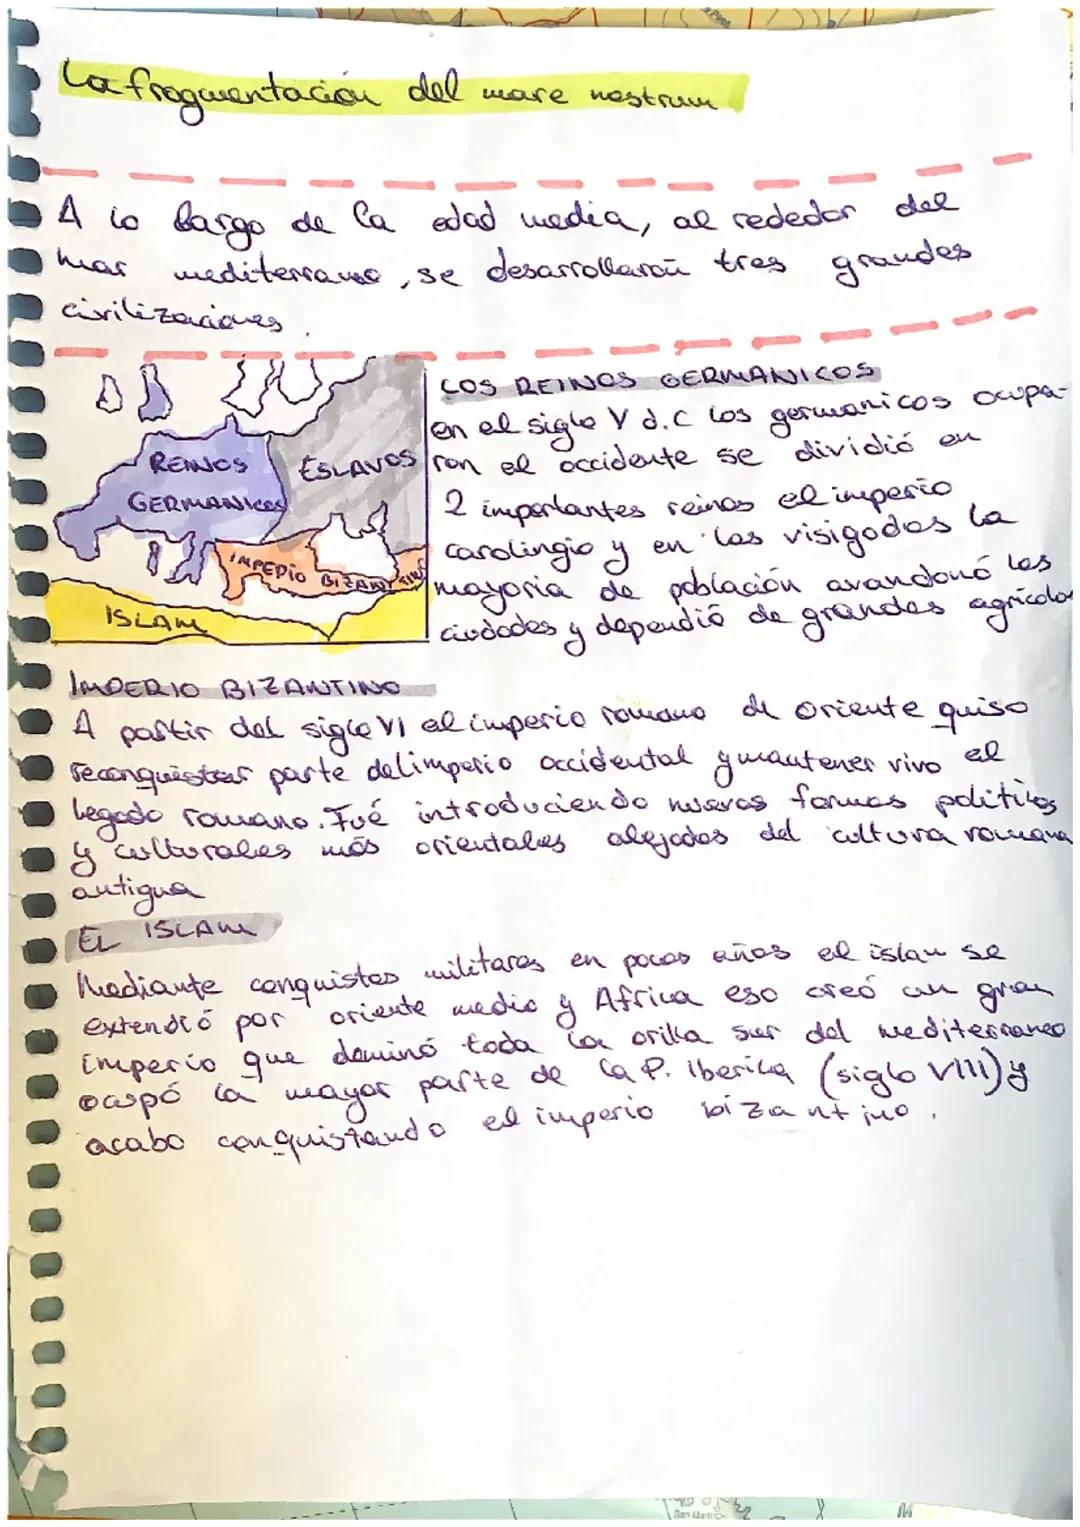 La fragmentación del mare nostrum
A lo largo de la edad media, al rededor del
mar mediterraneo, se desarrollaron tres grandes
civilizaciones.
REINOS
GERMANICOS
ESLAVOS
IMPERIO BIZANTINO
ISLAM
LOS REINOS GERMANICOS
en el siglo V d.C los germanicos ocupa-
ron el occidente se dividió en
2 importantes reinos el imperio
carolingio y en los visigodos la
mayoria de población avandonó las
ciudades y dependió de grandes agricolas
IMPERIO BIZANTINO
A partir del siglo VI el imperio romano de oriente quiso
reconquistar parte del imperio occidental y mantener vivo el
legado romano. Fué introduciendo nuevas formas politicas
y culturales más orientales alejadas del cultura romana
antigua
EL ISLAM
Mediante conquistas militares en pocos años el islam se
extendió por oriente medio y Africa eso creó un gran
imperio que dominó toda la orilla sur del mediterraneo
ocupó la mayor parte de la P. Iberica (siglo VIII) y
acabo conquistando el imperio bizantino.
San Martín